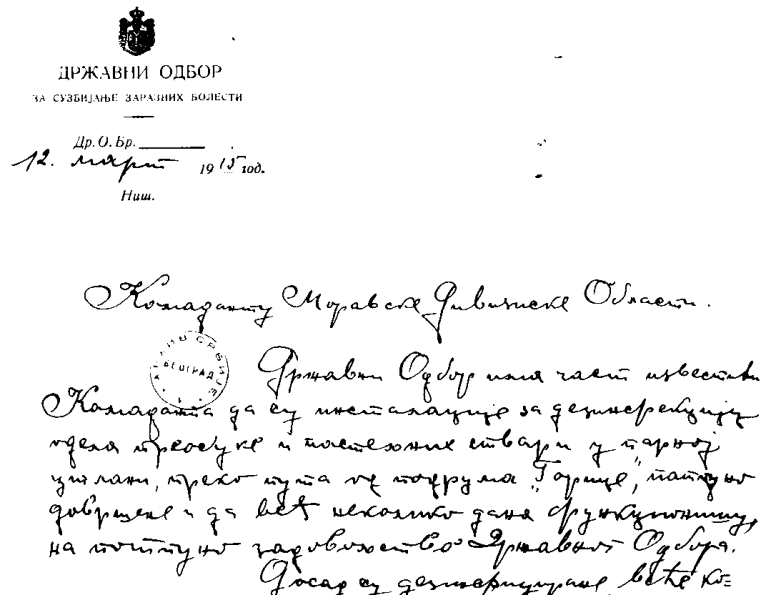 ДРЖАВНИ ОДБОР
ЗА СУЗБИЈАЊЕ ЗАРАЗНИХ БОЛЕСТИ
Др. О. Бр.
12. март 1915 год.
Ниш.
Командант у Моравске Дивизиске Области.
АРХИВ СРБИЈЕ
БЕОГРАД
Државни Одбор има част известити
Команданта да су инсталације за дезинфекцију
одела преобуке и постељне ствари у парној
циглани, преко пута од подрума „Горице", потпуно
довршене и да већ неколико дана функционишу,
на потпуно задовољство Државног Одбора.
Досад су дезинфициране веће ко=